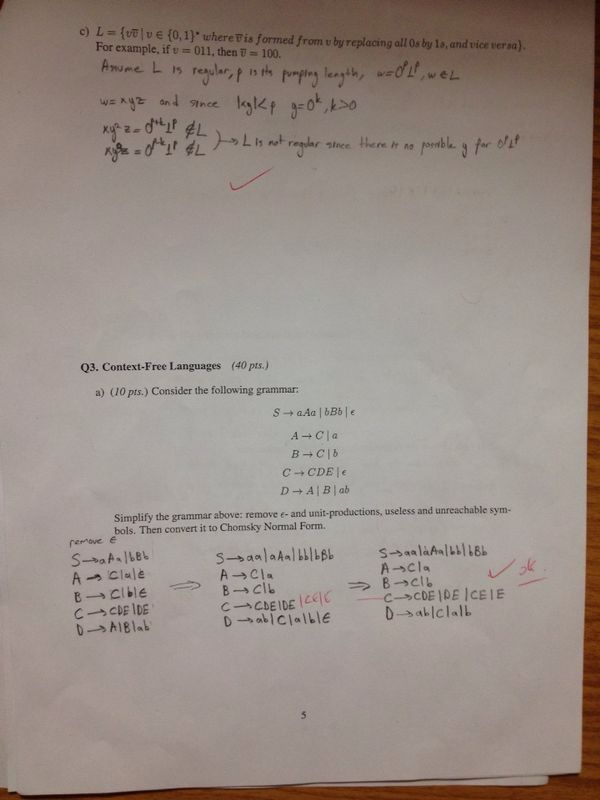 c) L = {vv̅ | v ∈ {0,1}* where v̅ is formed from v by replacing all 0s by 1s, and vice versa}.
For example, if v = 011, then v̅ = 100.
Assume L is regular, p is its pumping length, w=0ᵖ1ᵖ, w∈L
w=xyz and since |xy|<p y=0ᵏ, k>0
xy²z = 0ᵖ⁺ᵏ1ᵖ ∉L
xy⁰z = 0ᵖ⁻ᵏ1ᵖ ∉L } → L is not regular since there is no possible y for 0ᵖ1ᵖ
Q3. Context-Free Languages (40 pts.)
a) (10 pts.) Consider the following grammar:
S → aAa | bBb | ϵ
A → C | a
B → C | b
C → CDE | ϵ
D → A | B | ab
Simplify the grammar above: remove ϵ- and unit-productions, useless and unreachable sym-
bols. Then convert it to Chomsky Normal Form.
remove ϵ
S→aAa|bBb S→aa|aAa|bb|bBb S→aa|aAa|bb|bBb
A→C|a|ϵ A→C|a A→C|a
B→C|b|ϵ ⇒ B→C|b ⇒ B→C|b ok
C→CDE|DE C→CDE|DE|CE|E C→CDE|DE|CE|E
D→A|B|ab D→ab|C|a|b|ϵ D→ab|C|a|b
5